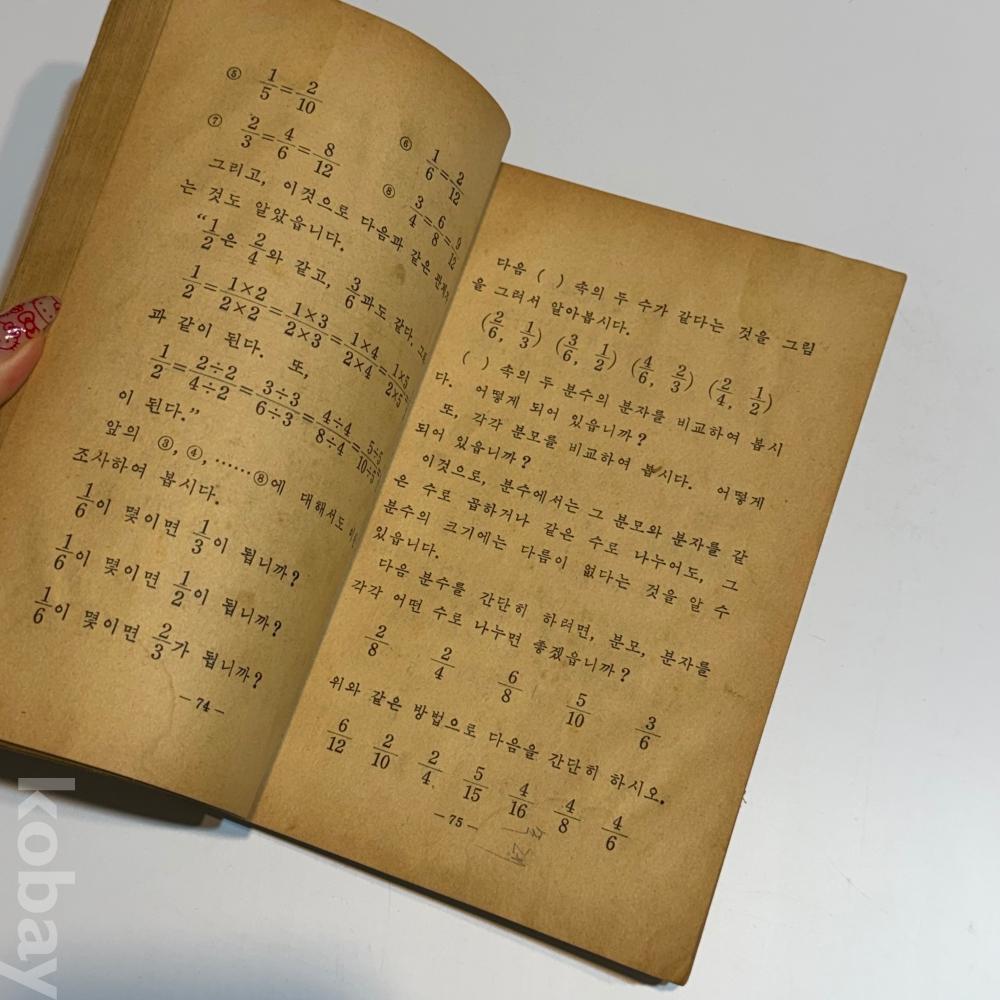 ⑤ 1/5=2/10
⑥ 1/6=2/12
⑦ 2/3=4/6=8/12
⑧ 3/4=6/8=9/12
그리고, 이것으로 다음과 같은 관계가
는 것도 알았읍니다.
“1/2은 2/4와 같고, 3/6과도 같다.
1/2=1×2/2×2=1×3/2×3=1×4/2×4=1×5/2×5=
과 같이 된다. 또,
1/2=2÷2/4÷2=3÷3/6÷3=4÷4/8÷4=5÷5/10÷5
이 된다.”
앞의 ③, ④, ……⑧에 대해서도
조사하여 봅시다.
1/6이 몇이면 1/3이 됩니까?
1/6이 몇이면 1/2이 됩니까?
1/6이 몇이면 2/3가 됩니까?
－74－
다음 ( ) 속의 두 수가 같다는 것을 그림
을 그려서 알아봅시다.
(2/6, 1/3) (3/6, 1/2) (4/6, 2/3) (2/4, 1/2)
( ) 속의 두 분수의 분자를 비교하여 봅시
다. 어떻게 되어 있읍니까?
또, 각각 분모를 비교하여 봅시다. 어떻게
되어 있읍니까?
이것으로, 분수에서는 그 분모와 분자를 같
은 수로 곱하거나 같은 수로 나누어도, 그
분수의 크기에는 다름이 없다는 것을 알 수
있읍니다.
다음 분수를 간단히 하려면, 분모, 분자를
각각 어떤 수로 나누면 좋겠읍니까?
2/8 2/4 6/8 5/10 3/6
위와 같은 방법으로 다음을 간단히 하시오.
6/12 2/10 2/4 5/15 4/16 4/8 4/6
－75－
kobay